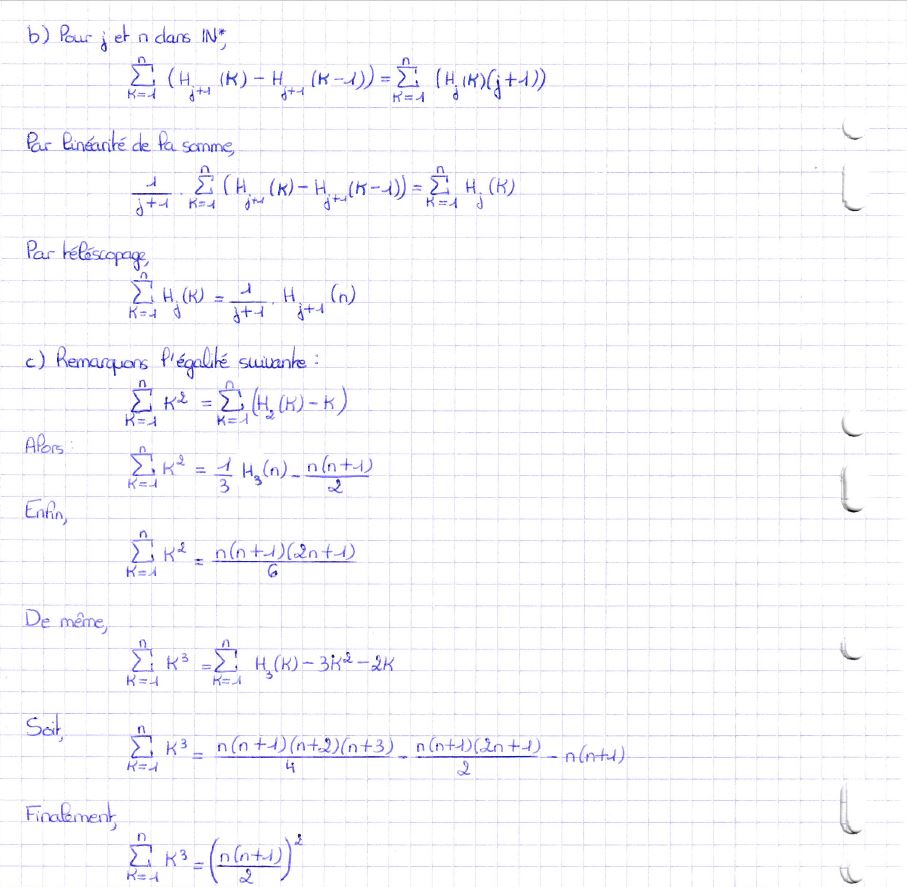 b) Pour j et n dans IN*,
∑_{K=1}^{n} (H_{j+1}(K) − H_{j+1}(K−1)) = ∑_{K=1}^{n} (H_j(K)(j+1))
Par linéarité de la somme,
1/(j+1) · ∑_{K=1}^{n} (H_{j+1}(K) − H_{j+1}(K−1)) = ∑_{K=1}^{n} H_j(K)
Par téléscopage,
∑_{K=1}^{n} H_j(K) = 1/(j+1) · H_{j+1}(n)
c) Remarquons l'égalité suivante :
∑_{K=1}^{n} K² = ∑_{K=1}^{n} (H_2(K) − K)
Alors : ∑_{K=1}^{n} K² = 1/3 H_3(n) − n(n+1)/2
Enfin,
∑_{K=1}^{n} K² = n(n+1)(2n+1)/6
De même,
∑_{K=1}^{n} K³ = ∑_{K=1}^{n} H_3(K) − 3K² − 2K
Soit, ∑_{K=1}^{n} K³ = n(n+1)(n+2)(n+3)/4 − n(n+1)(2n+1)/2 − n(n+1)
Finalement,
∑_{K=1}^{n} K³ = (n(n+1)/2)²